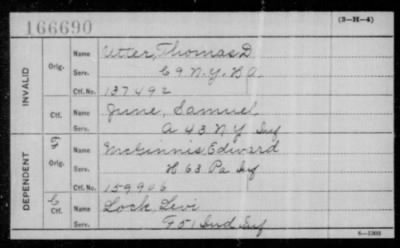 166690
(3-H-4)
INVALID
Orig.
Name Utter, Thomas D.
Serv. C 9 N.Y. B A.
Ctf. No. 137492
Ctf.
Name June, Samuel
Serv. A 43 N Y Inf
DEPENDENT
Orig.
Name McKinnis, Edward
Serv. H 63 Pa Inf
Ctf. No. 159906
C
Ctf.
Name Lock Levi
Serv. F 51 Ind Inf